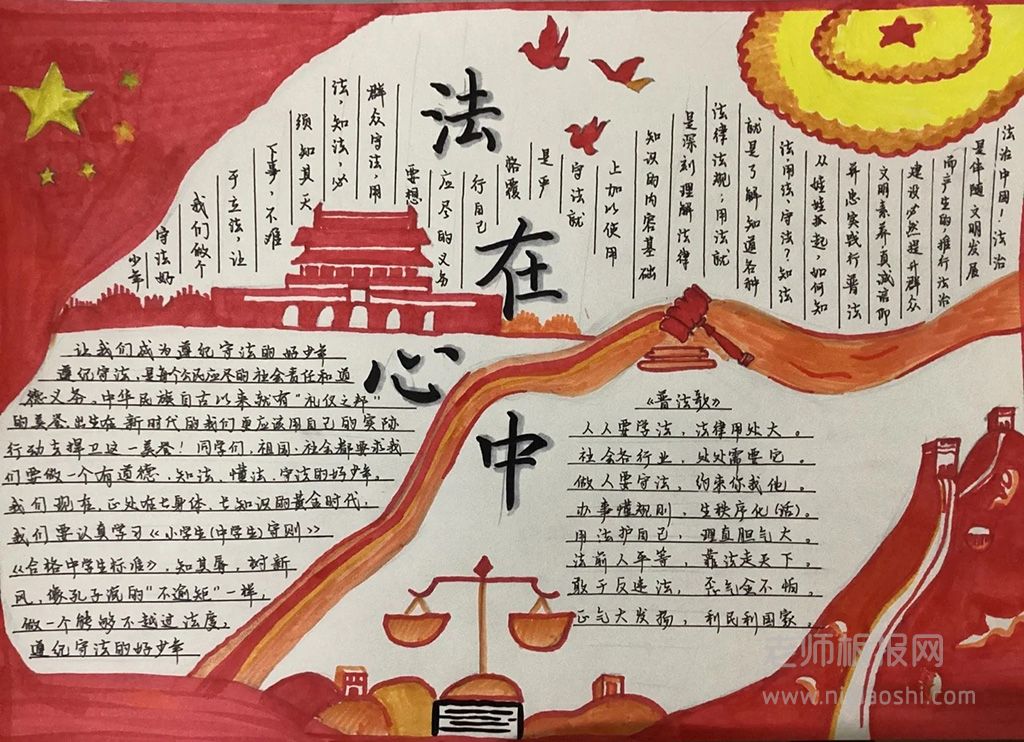 法在心中
法治中国！法治
是伴随文明发展
而产生的，推行法治
建设必然提升群众
文明素养，真诚信仰
并忠实践行普法
从娃娃抓起，如何知
法、用法、守法？知法
就是了解知道各种
法律法规；用法就
是深刻理解法律
知识的内容基础
上加以使用
守法就
是严
格履
行自己
应尽的义务
要想
群众守法，用
法，知法，必
须知其天
下事，不难
于立法，让
我们做个
守法好
少年
让我们成为遵纪守法的好少年
遵纪守法，是每个公民应尽的社会责任和道
德义务。中华民族自古以来就有“礼仪之邦”
的美誉，出生在新时代的我们更应该用自己的实际
行动去捍卫这一美誉！同学们，祖国、社会都要求我
们要做一个有道德、知法、懂法、守法的好少年。
我们现在，正处在长身体、长知识的黄金时代，
我们要认真学习《小学生(中学生)守则》
《合格中学生标准》，知其辱，树新
风，像孔子说的“不逾矩”一样，
做一个能够不越过法度，
遵纪守法的好少年
《普法歌》
人人要学法，法律用处大。
社会各行业，处处需要它。
做人要守法，约束你我他。
办事懂规则，生秩序化(活)。
用法护自己，理直胆气大。
法前人平等，靠法走天下。
敢于反违法，歪气全不怕。
正气大发扬，利民利国家。
老师板报网